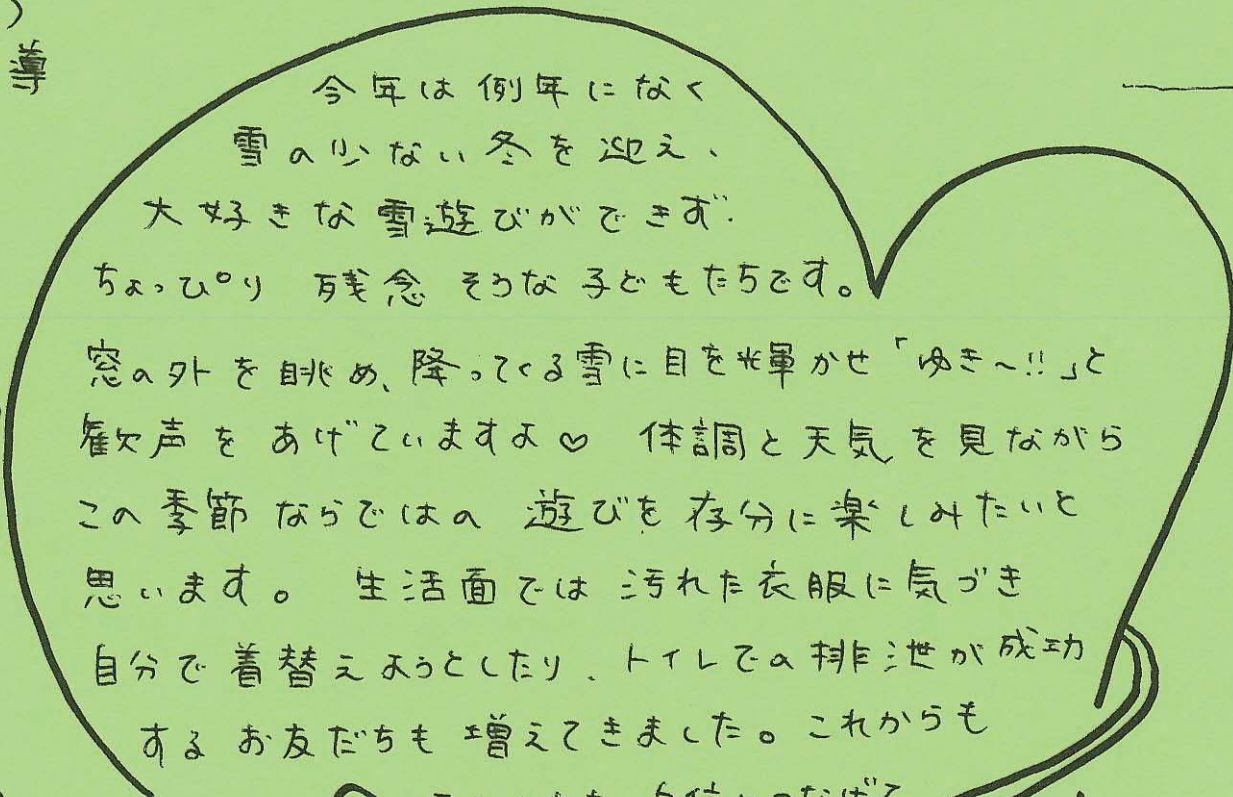 導
今年は例年になく
雪の少ない冬を迎え、
大好きな雪遊びができず、
ちょっぴり 残念そうな子どもたちです。
窓の外を眺め、降ってくる雪に目を輝かせ「ゆき～!!」と
歓声をあげていますよ♡ 体調と天気を見ながら
この季節ならではの 遊びを存分に楽しみたいと
思います。 生活面では汚れた衣服に気づき
自分で着替えようとしたり、トイレでの排泄が成功
するお友だちも増えてきました。これからも
つなげて